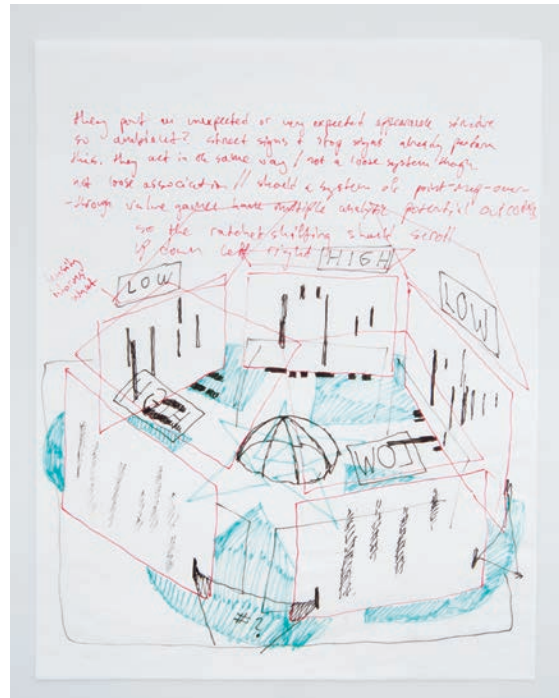 they put an unexpected or very expected appearance structure
so ambivalet? street signs & stop signs already perform
this. they act in the same way / not a loose system though
not loose association // should a system of point-drag-over-
-through value games have multiple analytic potential outcomes
so the ratchet shifting should scroll
up down left right
HIGH
LOW
LOW
HIGH
LOW
#?